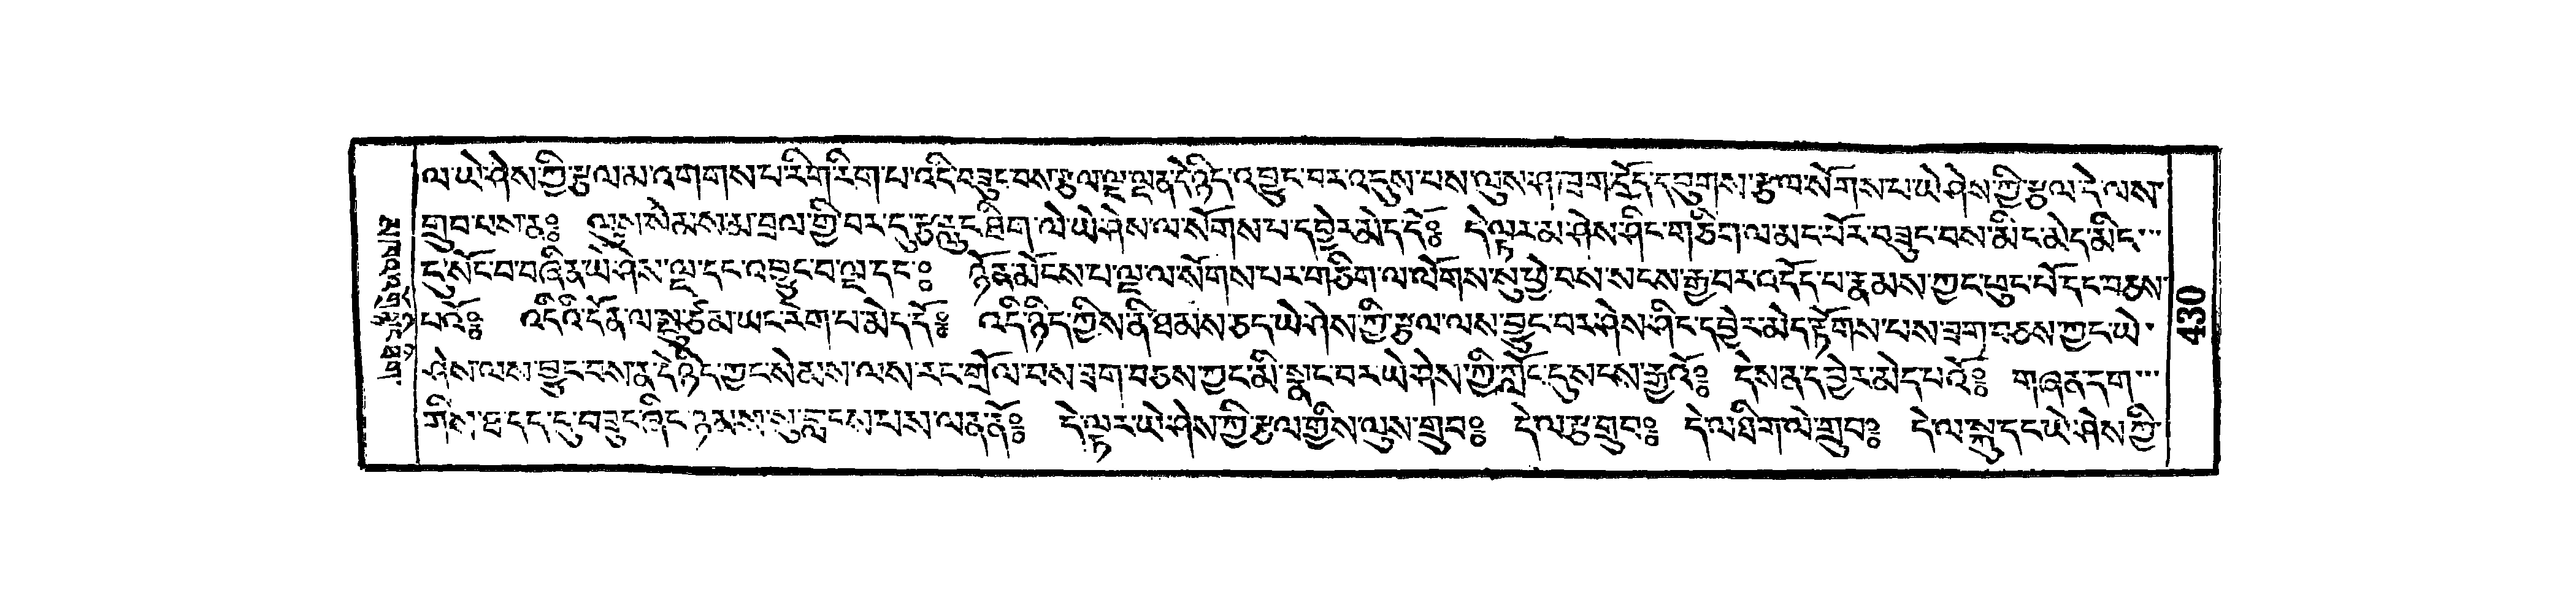 ལ་ཡེ་ཤེས་ཀྱི་རྩལ་མ་འགགས་པ་རིག་རིག་པ་འདི་བཟུང་བས་རྩལ་ལྔ་ལྡན་དེ་ཉིད་འབྱུང་བར་འདུས་པས་ལུས་ཤ་ཁྲག་དྲོད་དབུགས་རྩ་ལ་སོགས་པ་ཡེ་ཤེས་ཀྱི་རྩལ་དེ་ལས་
གྲུབ་པས་ན༔ ལུས་སེམས་མ་བྲལ་གྱི་བར་དུ་རྩ་རླུང་ཐིག་ལེ་ཡེ་ཤེས་ལ་སོགས་པ་དབྱེར་མེད་དེ༔ དེ་ལྟར་མ་ཤེས་ཤིང་གཅིག་ལ་མང་པོར་བཟུང་བས་མིང་མེད་མིང་
དུ་སོང་བ་བཞིན་ཡེ་ཤེས་ལྔ་དང་འབྱུང་བ་ལྔ་དང་༔ ཉོན་མོངས་པ་ལྔ་ལ་སོགས་པར་གཅིག་ལ་ལོགས་སུ་ཕྱེ་བས་སངས་རྒྱ་བར་འདོད་པ་རྣམས་ཀྱང་ཕུང་པོ་དང་བཅས་
པའོ༔ འདིའི་དོན་ལ་སྤུ་ཙམ་ཡང་རེག་པ་མེད་དོ༔ འདི་ཉིད་ཀྱིས་ནི་ཐམས་ཅད་ཡེ་ཤེས་ཀྱི་རྩལ་ལས་བྱུང་བར་ཤེས་ཤིང་དབྱེར་མེད་རྟོགས་པས་ཟག་བཅས་ཀྱང་ཡེ་
ཤེས་ལས་བྱུང་བས་ན་དེ་ཉིད་ཀྱང་སེམས་ལས་རང་གྲོལ་བས་ཟག་བཅས་ཀྱང་མི་སྣང་བར་ཡེ་ཤེས་ཀྱི་ཀློང་དུ་སངས་རྒྱའོ༔ དེས་ན་དབྱེར་མེད་པའོ༔ གཞན་དག་
གིས་ཐ་དད་དུ་བཟུང་ཞིང་ཉམས་སུ་བླངས་པས་ལན་ནོ༔ དེ་ལྟར་ཡེ་ཤེས་ཀྱི་རྩལ་གྱིས་ལུས་གྲུབ༔ དེ་ལ་རྩ་གྲུབ༔ དེ་ལ་ཐིག་ལེ་གྲུབ༔ དེ་ལ་སྐུ་དང་ཡེ་ཤེས་ཀྱི་
034